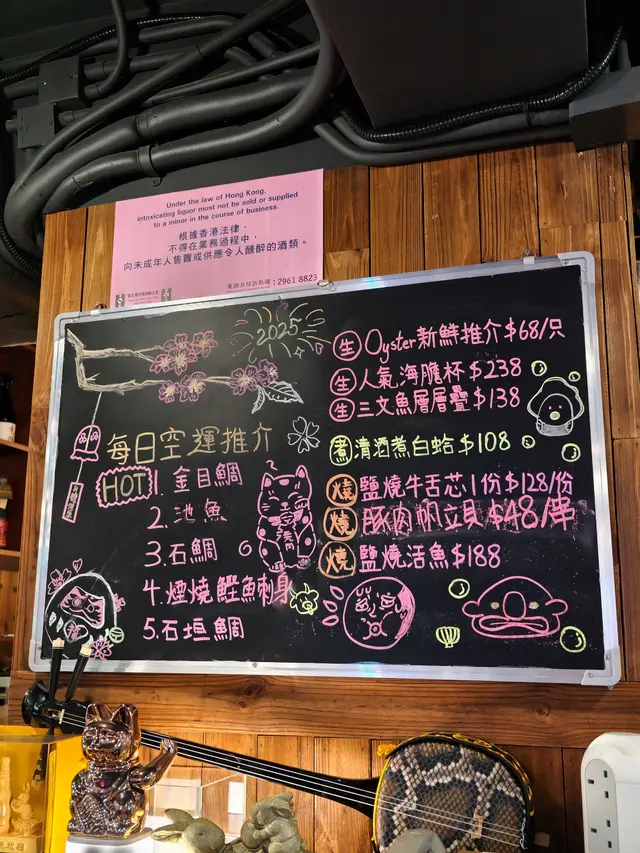 Under the law of Hong Kong,
intoxicating liquor must not be sold or supplied
to a minor in the course of business.
根據香港法律,
不得在業務過程中,
向未成年人售賣或供應令人醺醉的酒類。
: 2961 8823
2025
每日空運推介
HOT
1. 金目鯛
2. 池魚
3. 石鯛
4. 煙燒鰹魚刺身
5. 石垣鯛
生 Oyster 新鮮推介 $68/只
生 人氣海膽杯 $238
生 三文魚層層疊 $138
煮 清酒煮白蛤 $108
燒 鹽燒牛舌芯1份 $128/份
燒 豚肉帆立貝 $48/串
燒 鹽燒活魚 $188